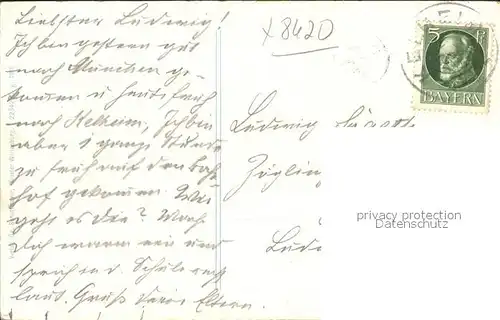 Liebster Ludwig!
Ich bin gestern gut
nach München ge-
kommen u heute früh
nach Kelheim, Ich bin
aber 1 ganze Stunde
zu früh auf den Bahn
hof gekommen. Wie
geht es dir? Mach
dich warm ein und
sprich in d. Schule recht
laut. Gruß deine Eltern.
x8420
5
BAYERN
Ludwig
Zögling
Ludw
privacy protection
Datenschutz